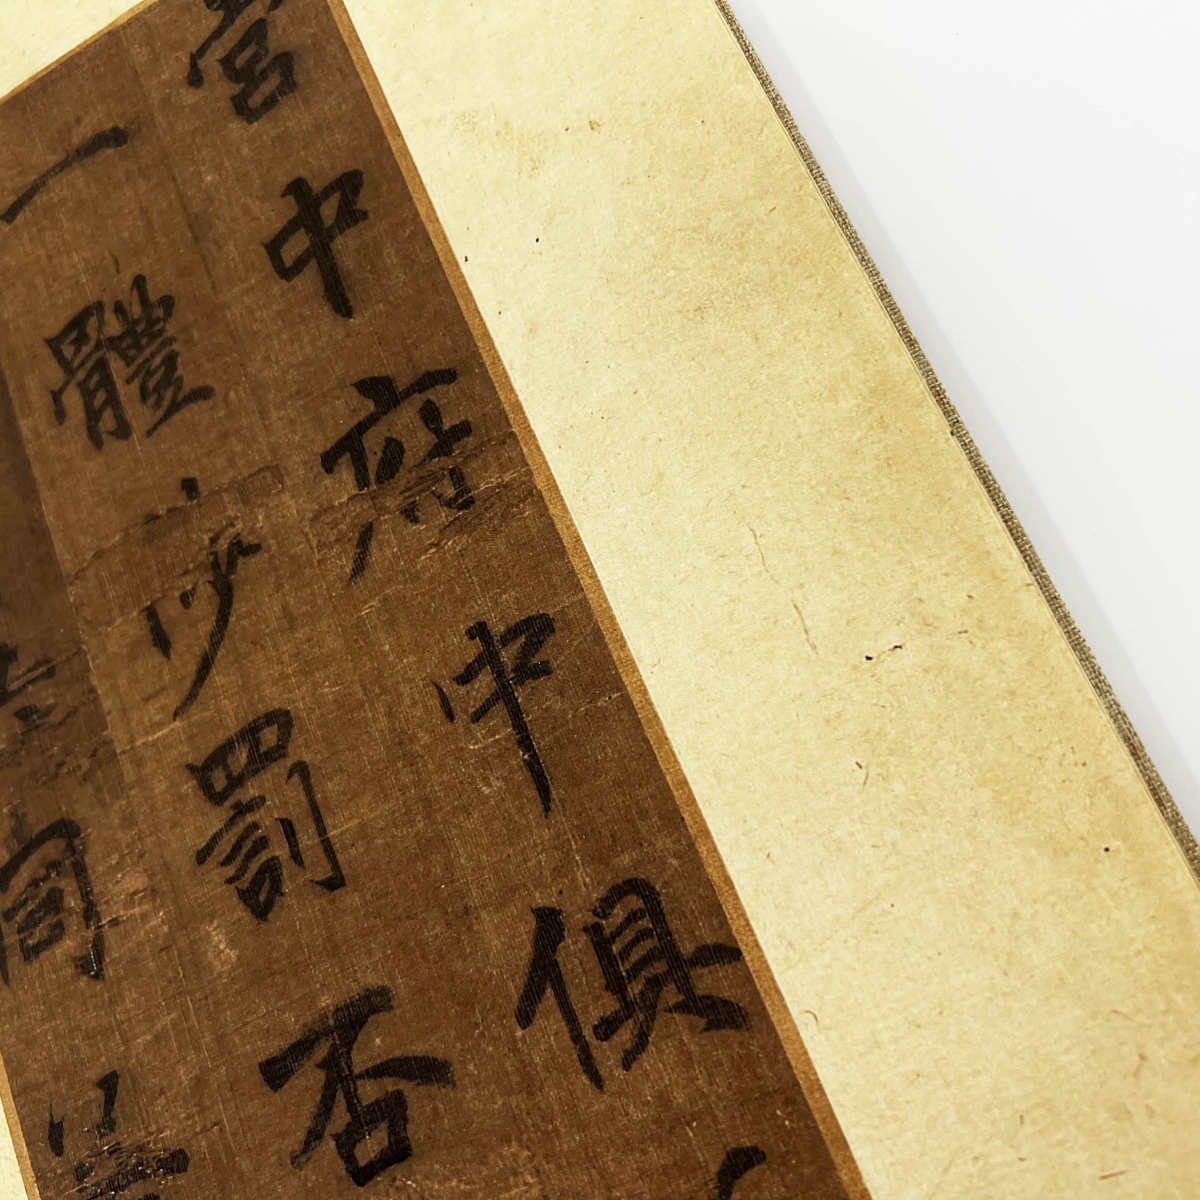 宮中府中俱
一體陟罰否
同